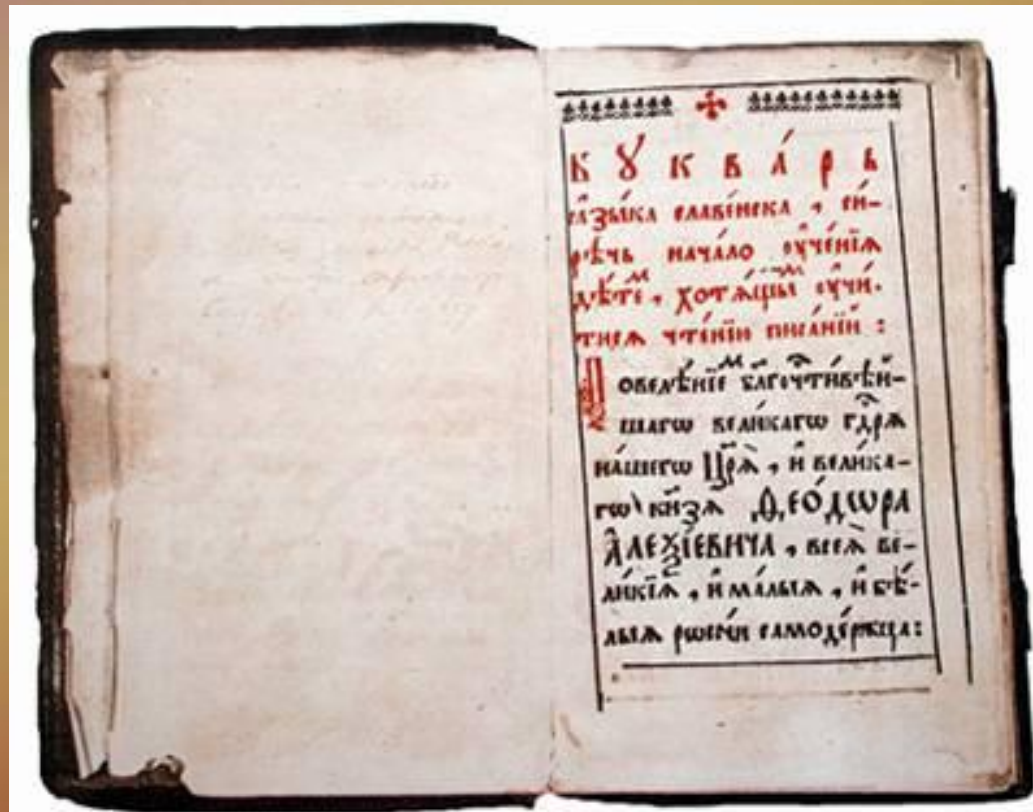 БУКВА́РЬ
ꙗ҆зы́ка славе́нска, си́-
рѣчь нача́ло ᲂу҆че́нїѧ
дѣ́теⷨ, хотѧ́щыⷨ ᲂу҆чи́-
тисѧ чте́нїю писа́нїй :
Повелѣ́нїеⷨ бл҃гочⷭ҇ти́вѣй-
шагѡ вели́кагѡ гдⷭ҇рѧ
на́шегѡ Цр҃ѧ̀, и҆ вели́ка-
гѡ кн҃зѧ Ѳео́дѡра
А҆леѯі́евича, всеѧ̀ ве-
ли́кїѧ, и҆ ма́лыѧ, и҆ бѣ́-
лыѧ рѡссі́и самоде́ржца :